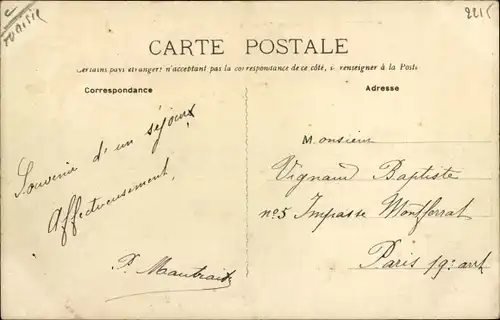 TUNISIE
221C
CARTE POSTALE
Certains pays étrangers n'acceptant pas la correspondance de ce côté, se renseigner à la Poste
Correspondance
Adresse
Souvenir d'un séjour
Affectueusement,
Monsieur
Vignaud Baptiste
n°5 Impasse Montferrat
Paris 19e arrt